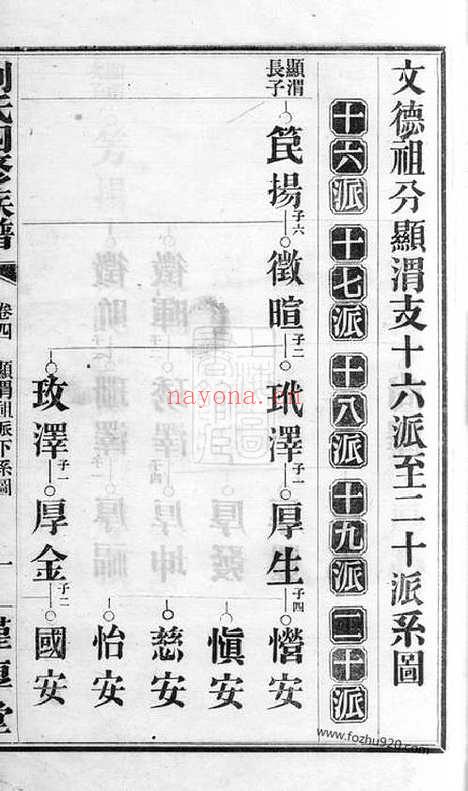 文德祖分顯渭支十六派至二十派系圖
十六派 十七派 十八派 十九派 二十派
顯渭長子
筤揚 子六
徵暄 子二
玳澤 子一
厚生 子四
憕安
愼安
慈安
怡安
玫澤 子一
厚金 子二
國安
劉氏四修族譜
卷四
顯渭祖派下系圖
一
堂
nayona.cn
www.fozhu920.com